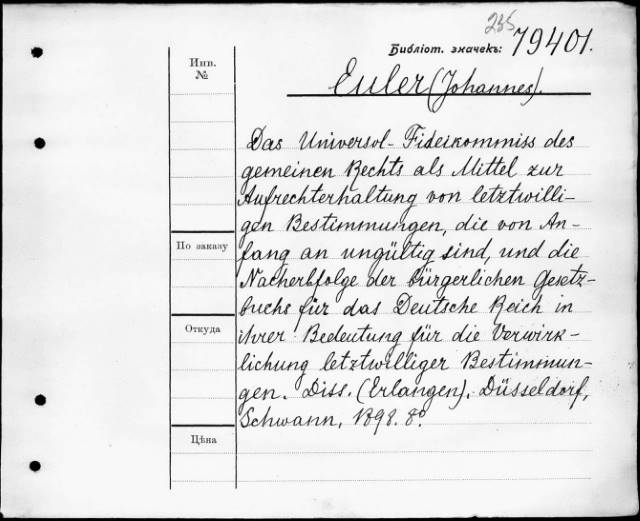 235
Библіот. значекъ: 79401.
Инв.
№
Euler (Johannes).
Das Universal-Fideikommiss des
gemeinen Rechts als Mittel zur
Aufrechterhaltung von letztwilli-
gen Bestimmungen, die von An-
По заказу
fang an ungültig sind, und die
Nacherbfolge der bürgerlichen Gesetz-
buchs für das Deutsche Reich in
Откуда
ihrer Bedeutung für die Verwirk-
lichung letztwilliger Bestimmun-
gen. Diss. (Erlangen). Düsseldorf,
Schwann, 1898. 8º.
Цѣна